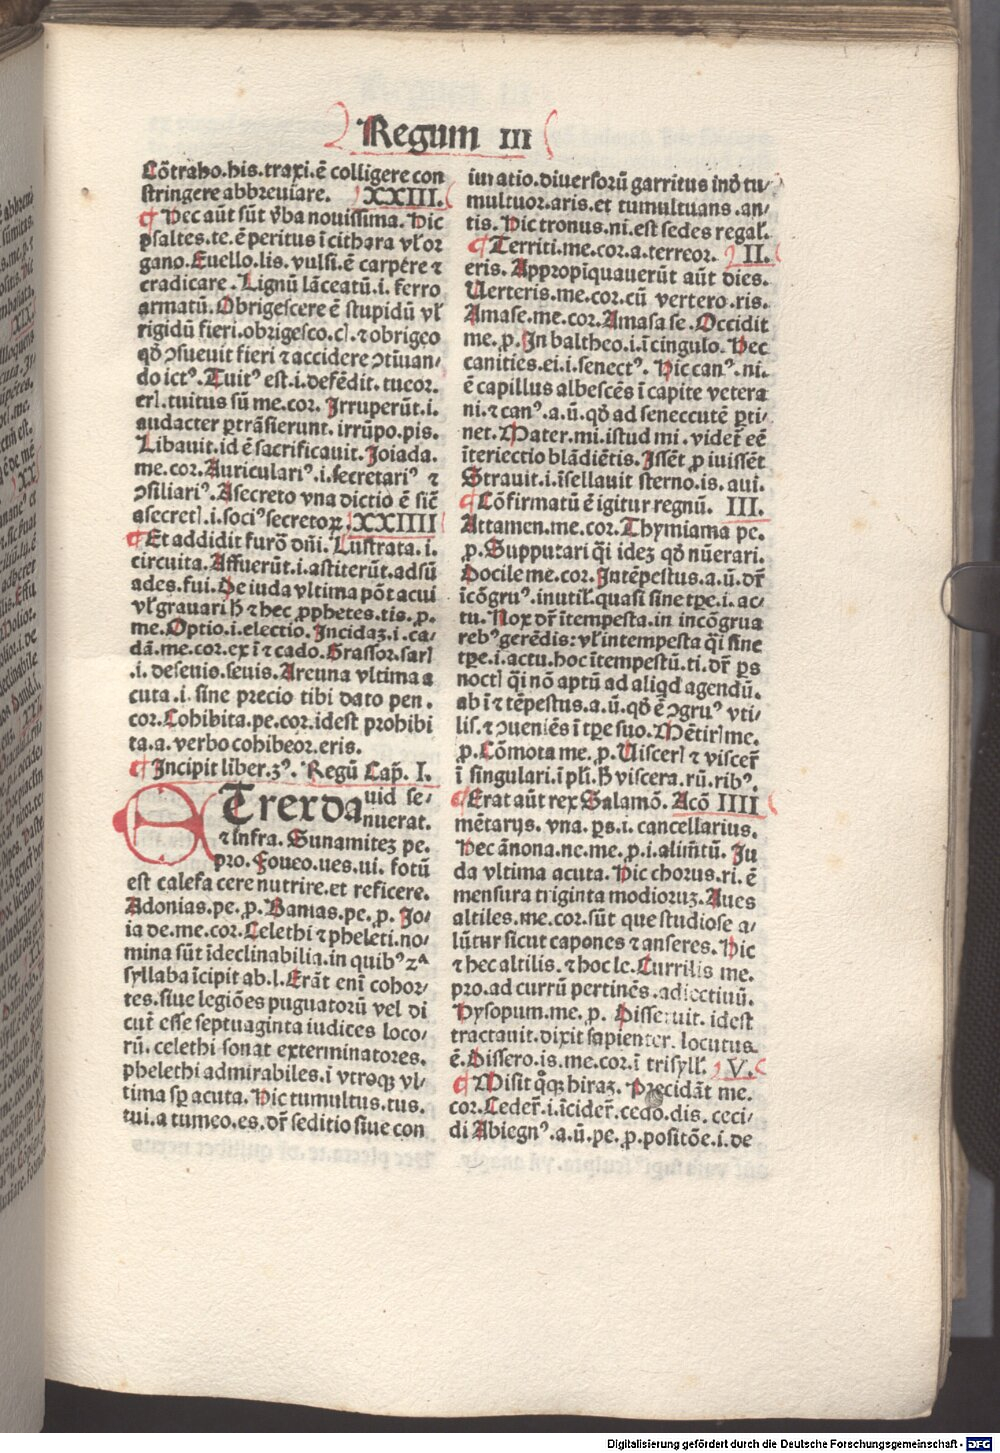 Regum III
Cõtraho.his.traxi.ẽ colligere con
stringere abbreviare. XXIII.
¶ Hec aũt sũt v̉ba nouissima. Hic
psaltes.te.ẽ peritus ĩ cithara vl̉ or
gano. Euello.lis. vulsi.ẽ carpere ⁊
eradicare. Lignũ lãceatũ.i. ferro
armatũ. Obrigescere ẽ stupidũ vl̉
rigidũ fieri.obrigesco.cꝭ.⁊ obrigeo
qđ ꝯsueuit fieri ⁊ accidere ꝯtĩuan⸗
do ictꝰ. Tuitꝰ est.i.defẽdit. tucor.
erꝭ.tuitus sũ me.cor. Irruperũt.i.
audacter ꝑtrãsierunt. irrũpo.pis.
Libauit.id ẽ sacrificauit. Joiada.
me.cor. Auriculariꝰ.i.secretariꝰ ⁊
ꝯsiliariꝰ. Asecreto vna dictio ẽ sič
asecretꝭ.i.sociꝰ secretoꝝ. XXIIII
¶ Et addidit furõ dñi. Lustrata.i.
circuita. Affuerũt.i.astiterũt.adsũ
ades.fui. De iuda vltima põt acui
vl̉ grauari ħ ⁊ hec ꝓphetes.tis.ꝓ.
me. Optio.i.electio. Incidaꝫ.i.ca⸗
dã.me.cor.ex ĩ ⁊ cado. Grassor.sarꝭ
.i.deseuis.seuis. Areuna vltima a
cuta.i. sine precio tibi dato pen.
cor. Cohibita.pe.cor.idest prohibi
ta.a.verbo cohibeor.eris.
¶ Incipit liber.3ꝰ. Regũ Cap̃. I.
ETrexda uid se⸗
nuerat.
⁊ infra. Sunamiteꝫ pe.
pro. Foueo.ues.ui. fotũ
est calefacere nutrire.et reficere.
Adonias.pe.ꝓ. Banias.pe.ꝓ. Jo⸗
iade.me.cor. Celethi ⁊ pheleti.no⸗
mina sũt ĩdeclinabilia.in quibꝰ 2ᵃ
syllaba ĩcipit ab.l. Erãt enĩ cohor⸗
tes.siue legiões puguatorũ vel di
cunt̃ esse septuaginta iudices loco⸗
rũ. celethi sonat exterminatores.
phelethi admirabiles.i vtroqꝫ vl⸗
tima sꝑ acuta. Hic tumultus.tus.
tui.a tumeo.es.dr̃ seditio siue con
iuratio.diuersorũ garritus inđ tu⸗
multuor.aris.et tumultuans.an⸗
tis. Hic tronus.ni.est sedes regal̉.
¶ Territi.me.cor.a.terreor. II.
eris. Appropiquauerũt aũt dies.
Uerteris.me.cor.cũ vertero.ris.
Amase.me.cor. Amasa se. Occidit
me.ꝓ. In baltheo.i.ĩ cingulo. Hec
canities.ei.i.senectꝰ. Hic canꝰ.ni.
ẽ capillus albescẽs ĩ capite vetera
ni.⁊ canꝰ.a.ũ.qđ ad seneccutẽ ꝑti⸗
net. Mater.mi.istud mi.videt̃ eẽ
ĩteriectio blãdiẽtis. Issẽt ꝓ iuissẽt
Strauit.i.ĩsellauit sterno.is.aui.
¶ Cõfirmatũ ẽ igitur regnũ. III.
Attamen.me.cor. Thymiama pe.
ꝓ. Supputari q̃i ideꝫ qđ nũerari.
Docile me.cor. Intẽpestus.a.ũ.dr̃
ĩcõgruꝰ.inutil̉.quasi sine tꝑe.i.ac⸗
tu. Nox dr̃ ĩtempesta.in incõgrua
rebꝰ gerẽdis: vl̉ intempesta q̃i sine
tꝑe.i.actu.hoc ĩtempestũ.ti.dr̃ ꝑs
noctꝭ q̃i nõ aptũ ad aliqđ agendũ.
ab ĩ ⁊ tẽpestus.a.ũ.qđ ẽ ꝯgruꝰ vti⸗
lis.⁊ ꝯueniẽs ĩ tꝑe suo. Mẽtirꝭ me.
ꝓ. Cõmota me.ꝓ. Uiscerꝭ ⁊ viscer̃
ĩ singulari.ĩ pl̉i. ħ viscera.rũ.ribꝰ.
¶ Erat aũt rex Salamõ. Acõ IIII
mẽtarijs. vna.ꝑs.i. cancellarius.
Hec ãnona.ne.me.ꝓ.i.alim̃tũ. Ju
da vltima acuta. Hic chorus.ri.ẽ
mensura triginta modioruꝫ. Aues
altiles.me.cor.sũt que studiose a⸗
lũtur sicut capones ⁊ anseres. Hic
⁊ hec altilis.⁊ hoc le. Currilis me.
pro.ad currũ pertinẽs.adiectiuũ.
Hysopum.me.ꝓ. Disseruit. idest
tractauit.dixit sapienter. locutus
ẽ. Dissero.is.me.cor.ĩ trisyll̉. V.
¶ Misit q̃ꝗꝫ hiraꝫ. Precidãt me.
cor. Ceder̃.i.ĩcider̃.cedo.dis.ceci⸗
di Abiegnꝰ.a.ũ.pe.ꝓ.positõe.i.de
Digitalisierung gefördert durch die Deutsche Forschungsgemeinschaft - DFG